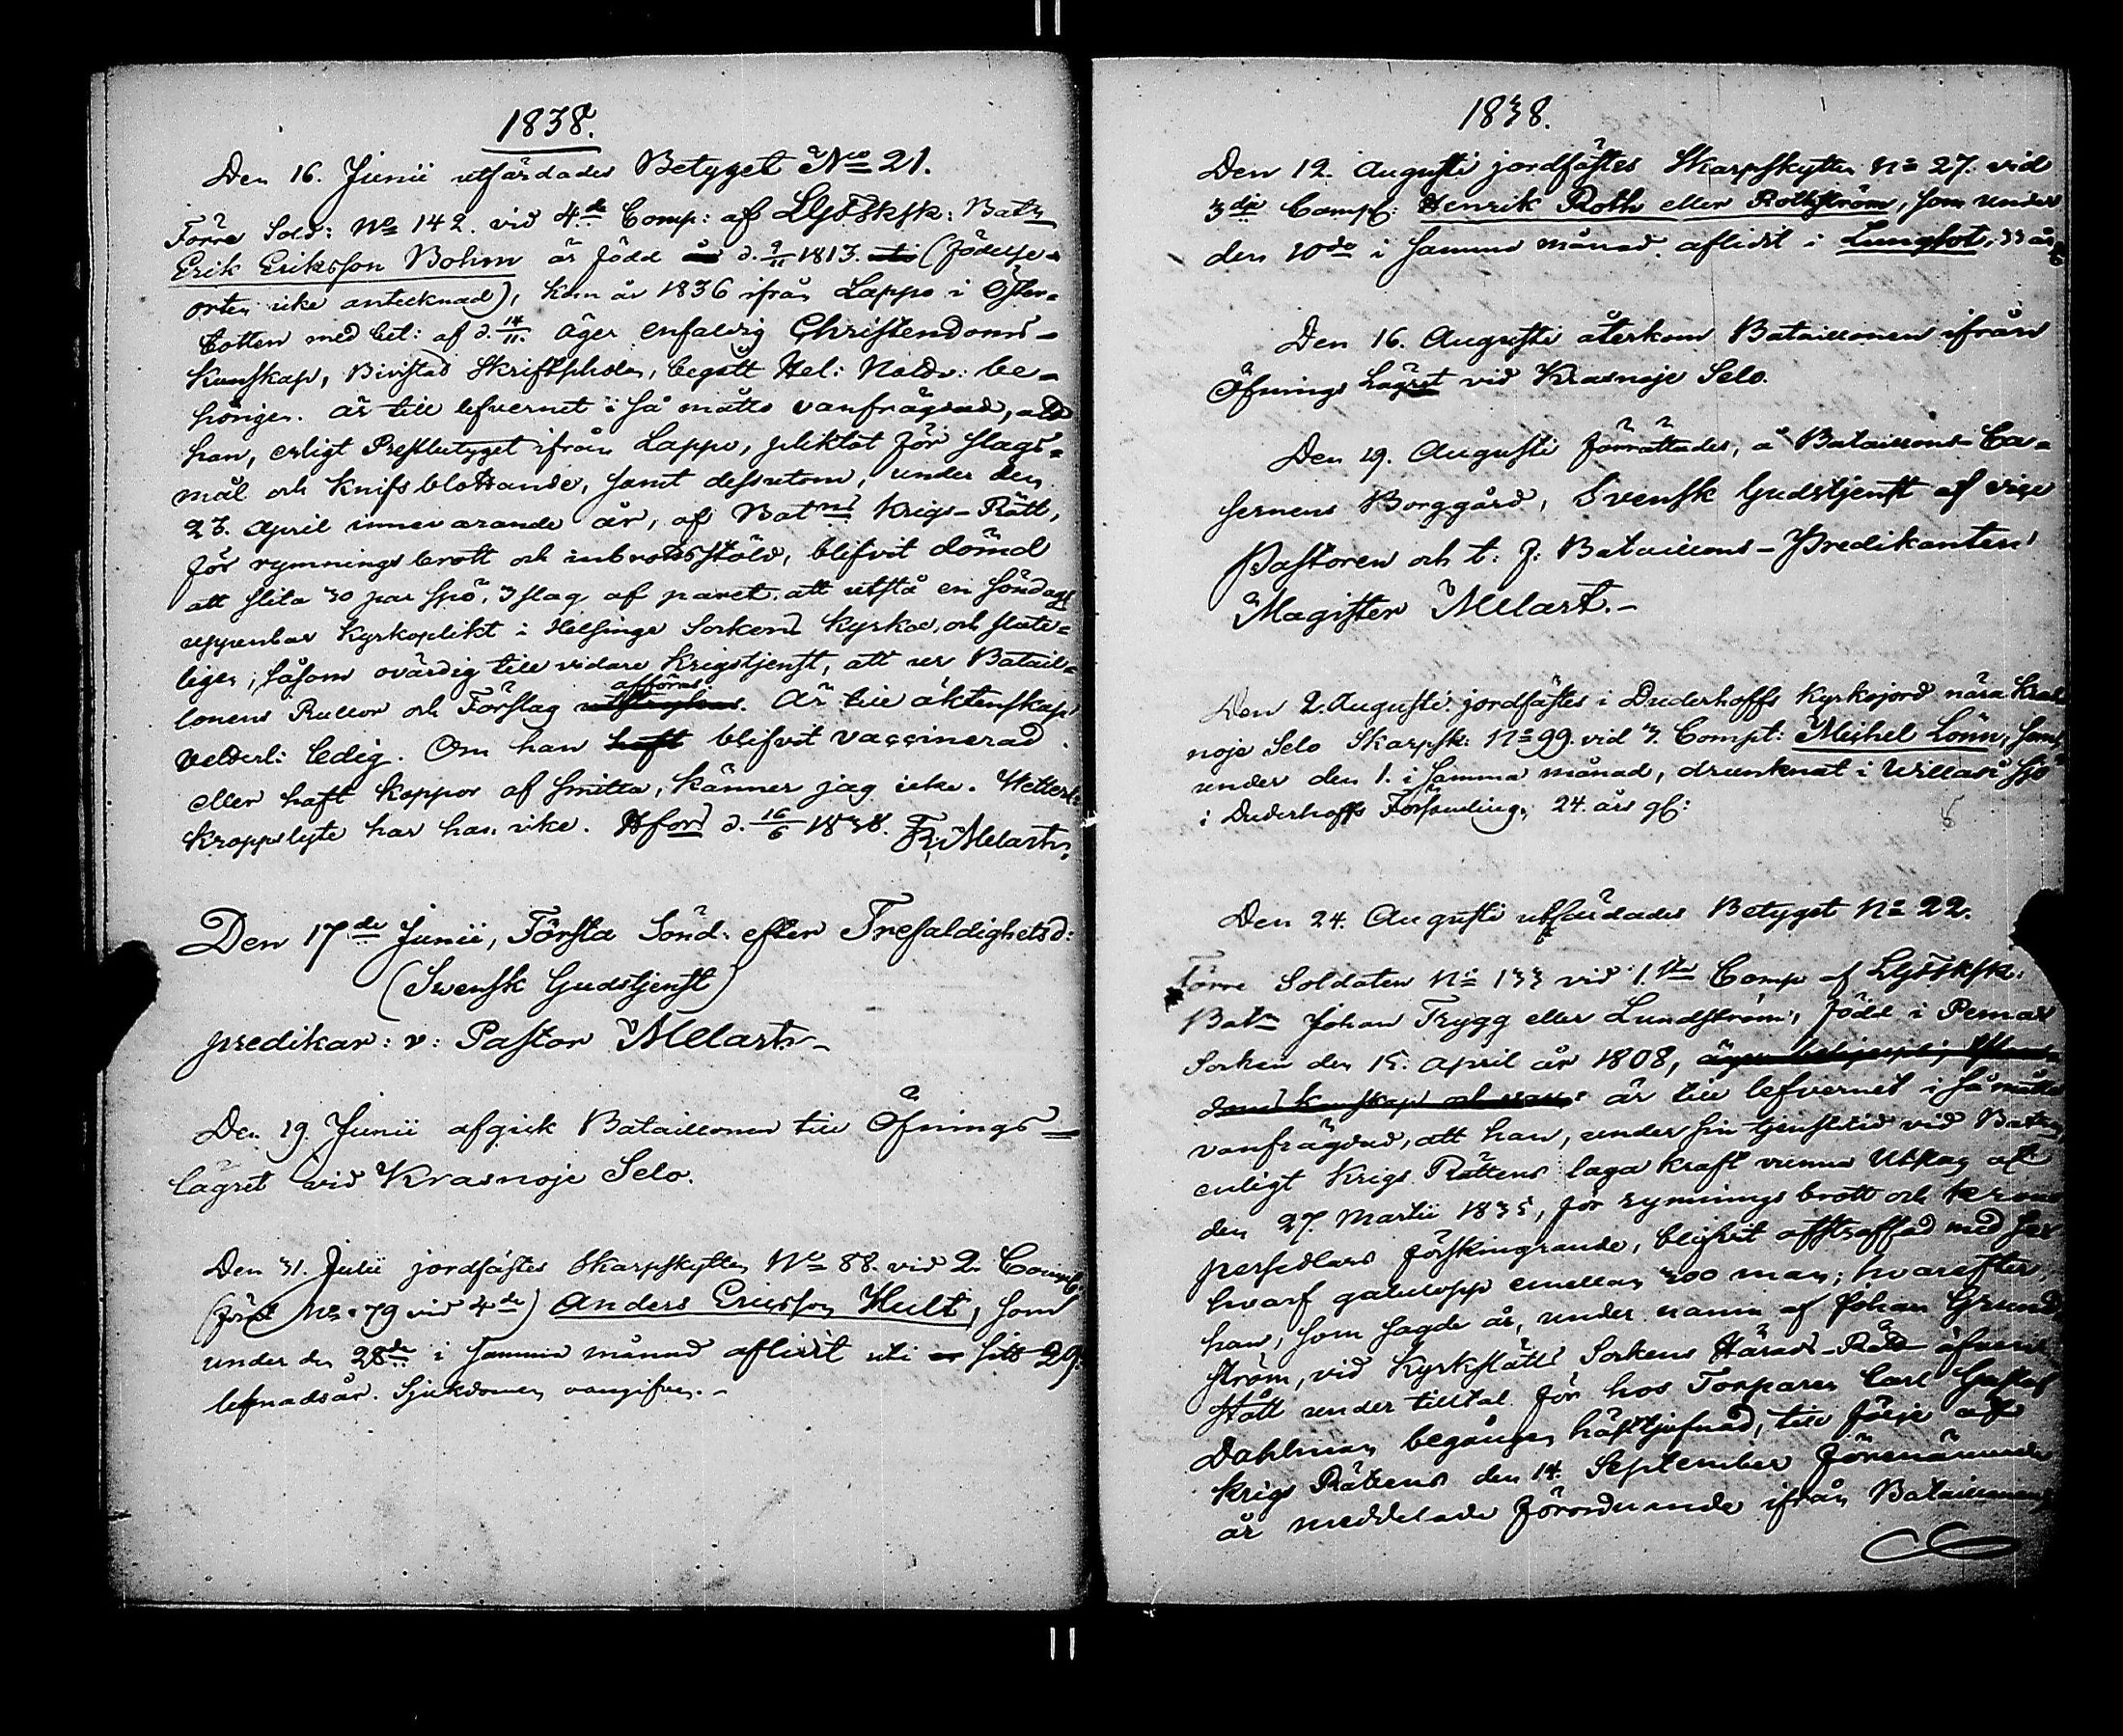 1838.
Den 16. Junii utfärdades Betyget No 21.
Förre Sold: No 142. vid 4de Comp: af LGdsFkSk: Batn
Erik Eriksson Bohm är född d. 9/11 1813. (födelse-
orten icke antecknad), kom år 1836 ifrån Lappo i Öster-
botten med bet: af d. 14/11. äger enfaldig Christendoms-
kunskap, Bivistad Skriftskolan, begått Hel: Nattv: be-
hörigen. är till lefvernet i så måtto vanfrägdad, att
han, enligt Prestbetyget ifrån Lappo, pliktat för slags-
mål och knifsblottande, samt dessutom, under den
23. April innevarande år, af Batns Krigs-Rätt,
för rymningsbrott och inbrottsstöld, blifvit dömd
att slita 30 par spö, 3 slag af paret, att utstå en söndags
uppenbar Kyrkoplikt i Helsinge Sockens Kyrka, och slute-
ligen, såsom ovärdig till vidare Krigstjenst, att ur Batail-
lonens Rullor och Förslag afföras. Är till äktenskap
vederl: ledig. Om han haft blifvit vaccinerad
eller haft koppor af smitta, känner jag icke. Vetterl:
kroppslyte har han icke. Hfors d. 16/6 1838. Fr. Melart.
Den 17de Junii, Första Sönd: efter Trefaldighetsd:
(Svensk Gudstjenst)
predikar: v: Pastor Melart.-
Den 19 Junii afgick Bataillonen till Öfnings-
lägret vid Krasnoje Selo.
Den 31. Julii jordfästes Skarpskytten No 88. vid 2. Comp:
(förut No 79 vid 4de) Anders Ericsson Hult, som
under den 28de i samma månad aflidit uti sitt 29.
lefnadsår. Sjukdomen oangifven.-
1838.
Den 12. Augusti jordfästes Skarpskytten No 27. vid
3dje Comp: Henrik Roth eller Rothström, som under
den 10de i samma månad aflidit i Lungsot, 33 år
Den 16. Augusti återkom Bataillonen ifrån
Öfnings Lägret vid Krasnoje Selo.
Den 19. Augusti förrättades, å Bataillons-Ca-
sernens Borggård, Svensk Gudstjenst af vice
Pastoren och t: f: Bataillons-Predikanten
Magister Melart.-
Den 2. Augusti jordfästes i Duderhoffs Kyrkojord nära Kras-
noje Selo Skarpsk: No 99. vid 3. Comp: Michel Lönn, som,
under den 1. i samma månad, drunknat i Willasi sjö
i Duderhoffs Församling, 24. års gl:
Den 24. Augusti utfärdades Betyget No 22.
Förre Soldaten No 133 vid 1.sta Comp af LGdsFkSk:
Batn Johan Trygg eller Lundström, född i Pemar
Socken den 15. April år 1808,
är till lefvernet i så måtto
vanfrägdad, att han, under sin tjenstetid vid Batn,
enligt Krigs Rättens laga kraft vunna Utslag af
den 27. Martii 1835, för rymningsbrott och krons
persedlars förskingrande, blifvit afstraffad med sex
hvarf gatulopp emellan 300 man; hvarefter
han, som sagde år, under namn af Johan Grund-
ström, vid Kyrkslätts Sockens Härads-Rätt äfven
stått under tilltal för hos Torparen Carl Gustaf
Dahlman begången häststjufnad, till följe af
Krigs Rättens den 14. September förenämnde
år meddelade förordnande ifrån Bataillonens